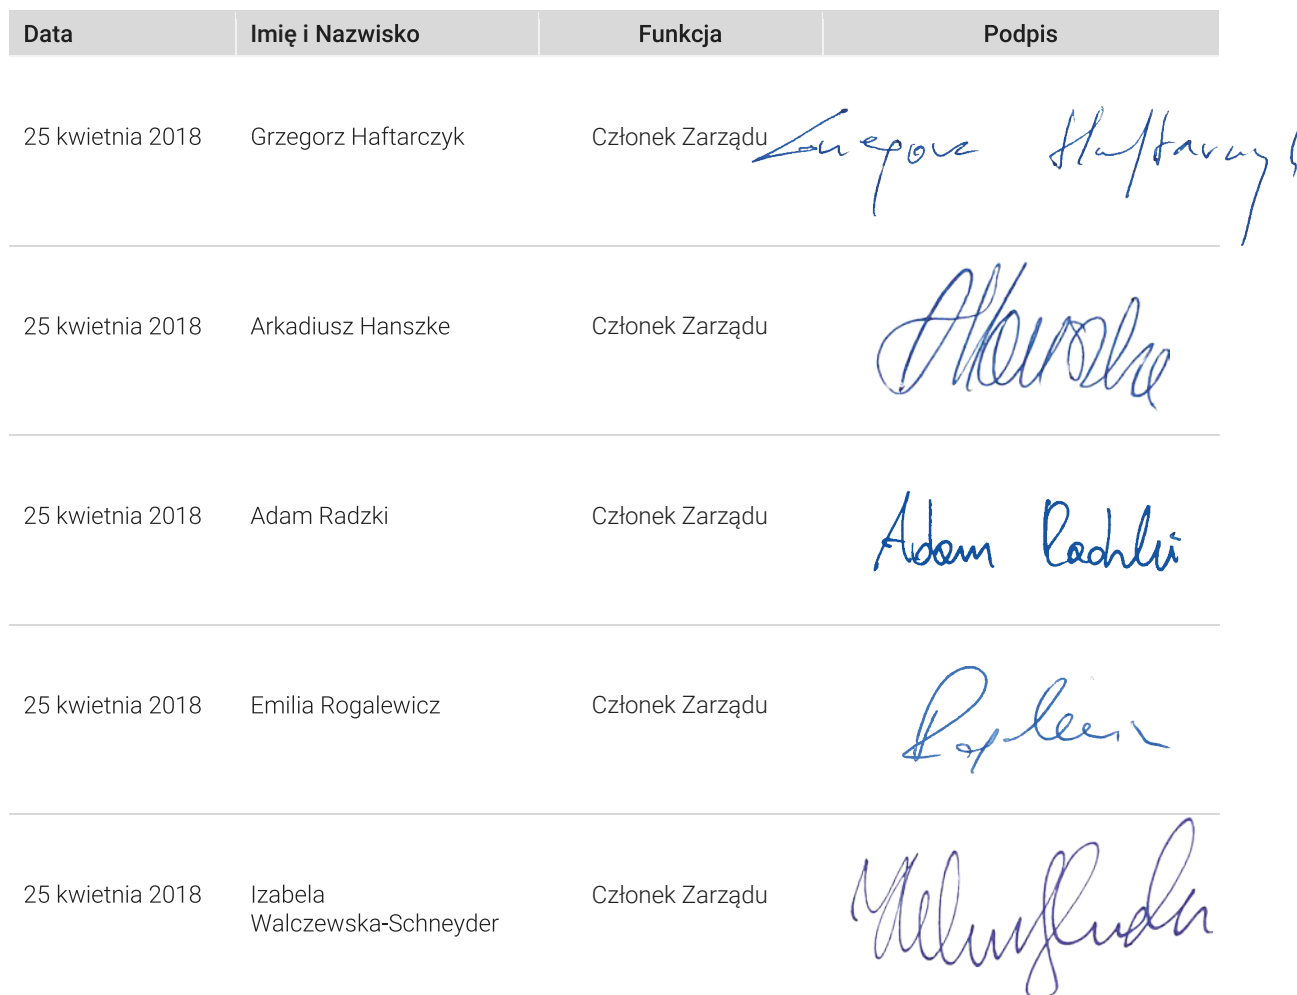 Data Imię i Nazwisko Funkcja Podpis
25 kwietnia 2018 Grzegorz Haftarczyk Członek Zarządu Grzegorz Haftarczyk
25 kwietnia 2018 Arkadiusz Hanszke Członek Zarządu AHanszke
25 kwietnia 2018 Adam Radzki Członek Zarządu Adam Radzki
25 kwietnia 2018 Emilia Rogalewicz Członek Zarządu
25 kwietnia 2018 Izabela Członek Zarządu
Walczewska-Schneyder